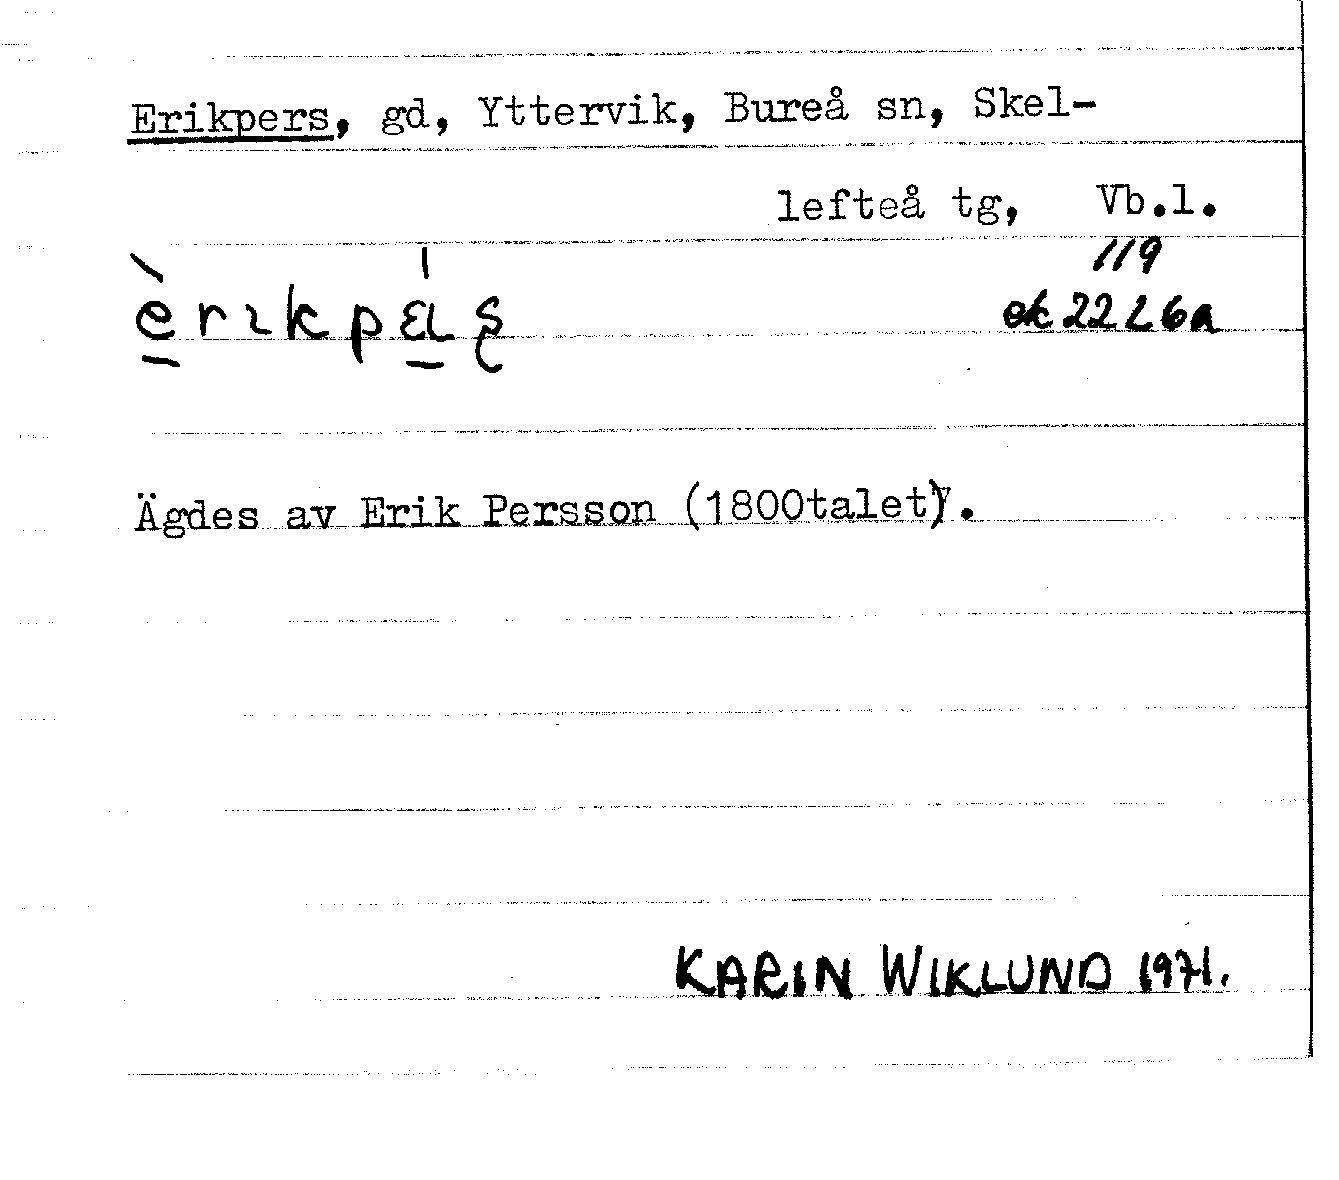 Erikpers, gd, Yttervik, Bureå sn, Skel-
lefteå tg, Vb.l.
119
ek 22 L 6a
Ägdes av Erik Persson (1800talet).
KARIN WIKLUND 1971.